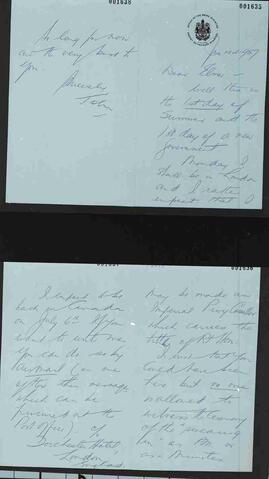 001638
001635
So long for now
and the very best to
you.
Sincerely
John
Dear Elmer –
Well this is
the 1st day of
Summer and the
1st day of a new
government
Monday I
shall be in London
and I rather
expect that I
001636
may be made an
Imperial Privy Councillor
which carries the
title of Rt Hon.
I wish that you
could have been
here but no one
is allowed to
witness the ceremony
of the "swearing
in" as PM or
as a Minister.
I expect to be
back in Canada
on July 6th. If you
want to write me
you can do so by
Airmail (on one
of the
which can be
purchased at the
Post Office)
Dorchester Hotel,
London,
England.